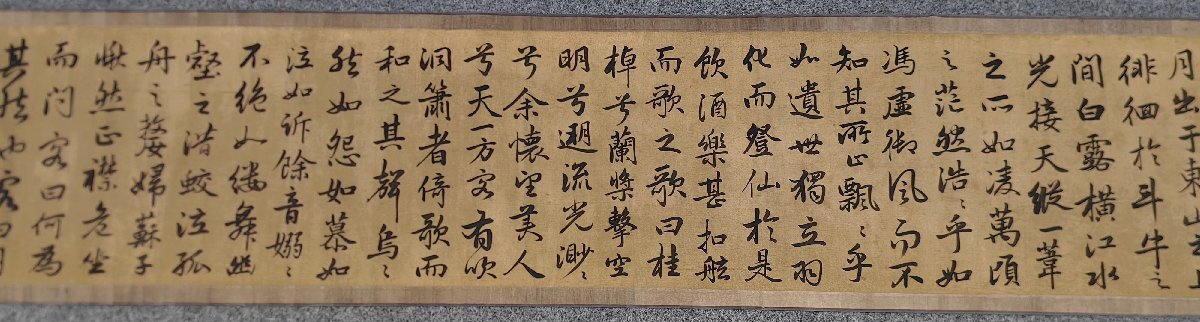 月出于東山之上
徘徊於斗牛之
間白露橫江水
光接天縱一葦
之所如凌萬頃
之茫然浩〻乎如
馮虛御風而不
知其所止飄〻乎
如遺世獨立羽
化而登仙於是
飲酒樂甚扣舷
而歌之歌曰桂
棹兮蘭槳擊空
明兮遡流光渺〻
兮余懷望美人
兮天一方客有吹
洞簫者倚歌而
和之其聲烏〻
然如怨如慕如
泣如訴餘音嫋〻
不絕如縷舞幽
壑之潛蛟泣孤
舟之嫠婦蘇子
愀然正襟危坐
而問客曰何為
其然也客曰月